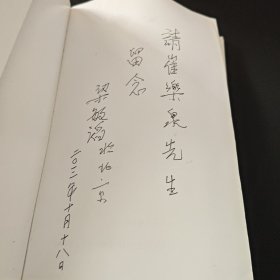 請崔樂泉先生
留念
梁敏滔於北京
二〇一二年十月十八日